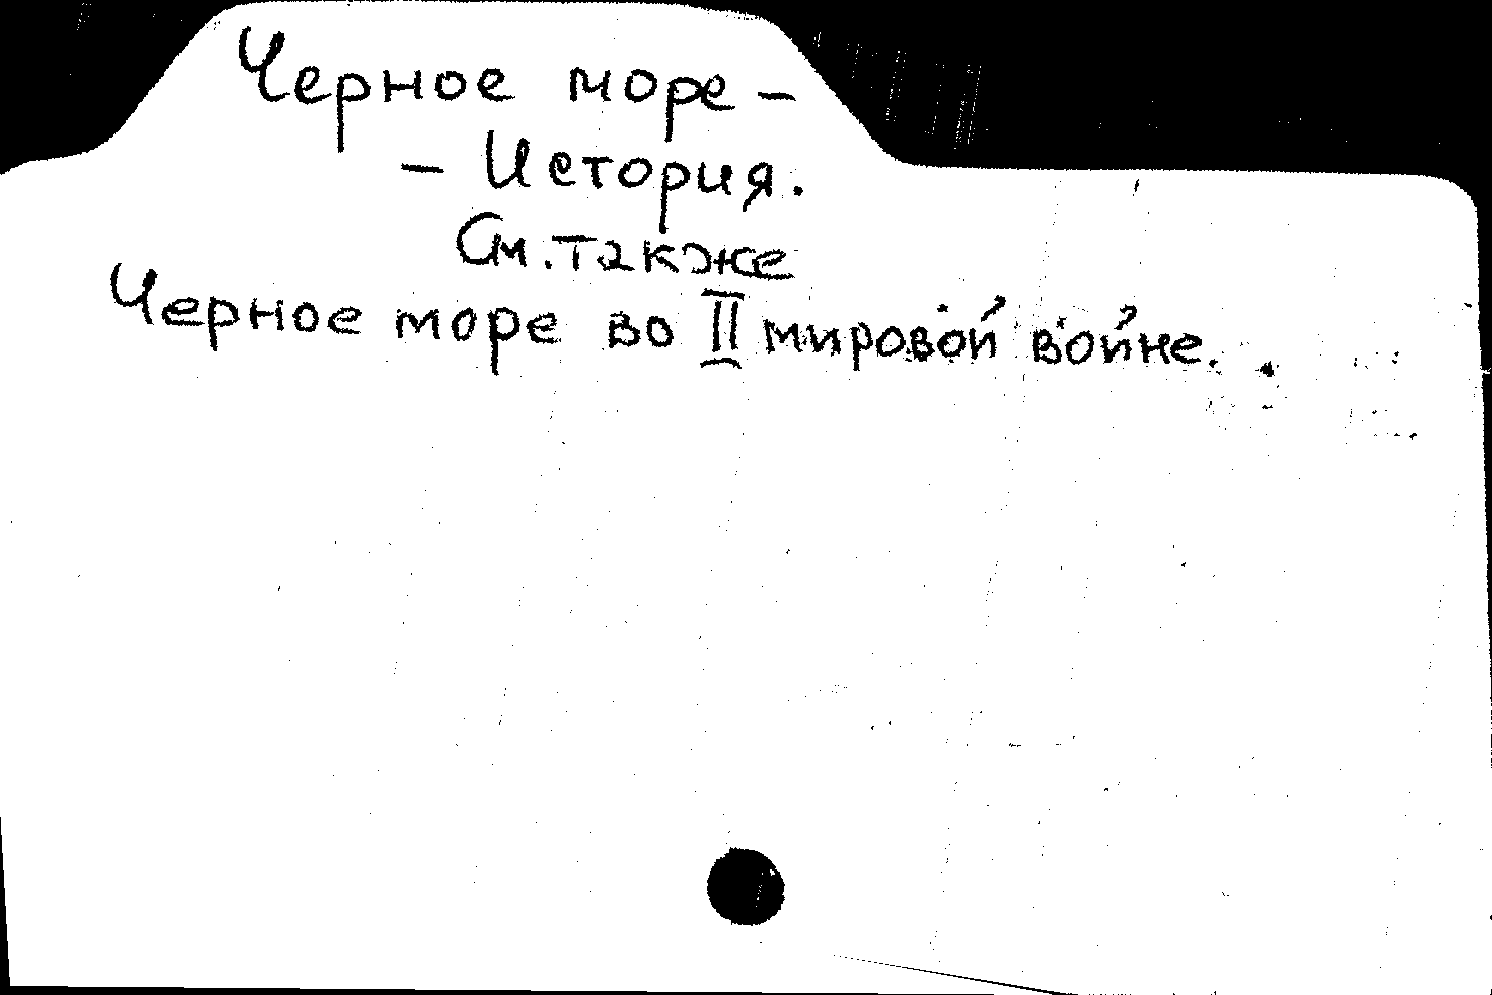 Черное море –
– История.
См. также
Черное море во II мировой войне.